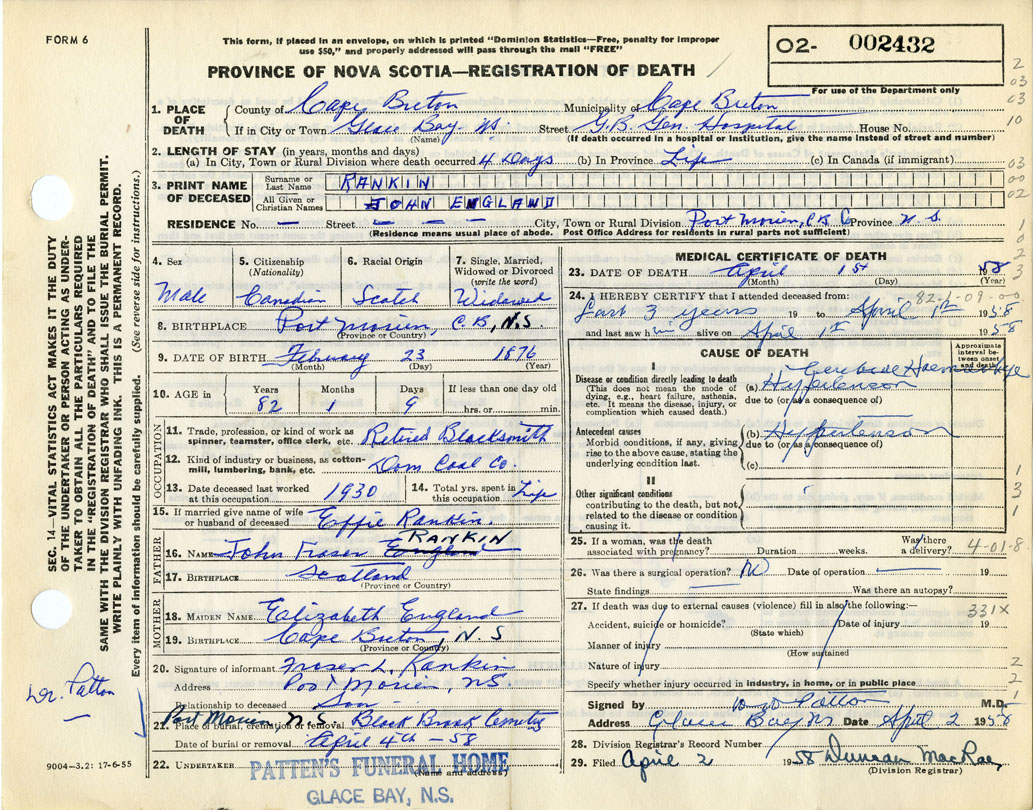 FORM 6
This form, if placed in an envelope, on which is printed "Dominion Statistics—Free, penalty for improper
use $50," and properly addressed will pass through the mail "FREE"
O2- 002432
For use of the Department only
PROVINCE OF NOVA SCOTIA—REGISTRATION OF DEATH
1. PLACE OF DEATH
County of Cape Breton Municipality of Cape Breton
If in City or Town Glace Bay NS. Street G.B Gen Hospital House No.
(Name) (If death occurred in a hospital or institution, give the name instead of street and number)
2. LENGTH OF STAY (in years, months and days)
(a) In City, Town or Rural Division where death occurred 4 Days (b) In Province Life (c) In Canada (if immigrant)
3. PRINT NAME OF DECEASED
Surname or Last Name RANKIN
All Given or Christian Names JOHN ENGLAND
RESIDENCE No. — Street — City, Town or Rural Division Port Morien, C.B. Co Province N.S.
(Residence means usual place of abode. Post Office Address for residents in rural parts not sufficient)
4. Sex Male
5. Citizenship (Nationality) Canadian
6. Racial Origin Scotch
7. Single, Married, Widowed or Divorced (write the word) Widowed
8. BIRTHPLACE Port Morien, C.B, N.S.
(Province or Country)
9. DATE OF BIRTH February 23 1876
(Month) (Day) (Year)
10. AGE in Years 82 Months 1 Days 9 If less than one day old hrs. or min.
OCCUPATION
11. Trade, profession, or kind of work as spinner, teamster, office clerk, etc. Retired Blacksmith
12. Kind of industry or business, as cotton-mill, lumbering, bank, etc. Dom Coal Co.
13. Date deceased last worked at this occupation 1930
14. Total yrs. spent in this occupation Life
15. If married give name of wife or husband of deceased Effie Rankin.
FATHER
16. NAME John Fraser England RANKIN
17. BIRTHPLACE Scotland
(Province or Country)
MOTHER
18. MAIDEN NAME Elizabeth England
19. BIRTHPLACE Cape Breton, N.S
(Province or Country)
20. Signature of informant Fraser L. Rankin
Address Port Morien, NS
Relationship to deceased Son
22. Place of burial, cremation or removal Port Morien N.S. Black Brook Cemetery
Date of burial or removal April 4th - 58
22. UNDERTAKER PATTEN'S FUNERAL HOME
(Name and address)
GLACE BAY, N.S.
MEDICAL CERTIFICATE OF DEATH
23. DATE OF DEATH April 1st 1958
(Month) (Day) (Year)
82-1-09-00
24. I HEREBY CERTIFY that I attended deceased from:
Last 3 years 19 to April 1th 1958
and last saw him alive on April 1th 1958
CAUSE OF DEATH
Approximate interval between onset and death
I
Disease or condition directly leading to death
(This does not mean the mode of dying, e.g., heart failure, asthenia, etc. It means the disease, injury, or complication which caused death.)
(a) Hypertension
due to (or as a consequence of)
Antecedent causes
Morbid conditions, if any, giving rise to the above cause, stating the underlying condition last.
(b) Hypertension
due to (or as a consequence of)
(c)
II
Other significant conditions
contributing to the death, but not related to the disease or condition causing it.
25. If a woman, was the death associated with pregnancy? Duration weeks. Was there a delivery? 4-01-8
26. Was there a surgical operation? No Date of operation 19
State findings Was there an autopsy?
27. If death was due to external causes (violence) fill in also the following: 331X
Accident, suicide or homicide? Date of injury 19
(State which)
Manner of injury
(How sustained
Nature of injury
Specify whether injury occurred in industry, in home, or in public place
Signed by Patton M.D.
Address Glace Bay NS Date April 2 1958
28. Division Registrar's Record Number
29. Filed April 2 1958 Duncan MacRae
(Division Registrar)
SEC. 14—VITAL STATISTICS ACT MAKES IT THE DUTY
OF THE UNDERTAKER OR PERSON ACTING AS UNDER-
TAKER TO OBTAIN ALL THE PARTICULARS REQUIRED
IN THE "REGISTRATION OF DEATH" AND TO FILE THE
SAME WITH THE DIVISION REGISTRAR WHO SHALL ISSUE THE BURIAL PERMIT.
WRITE PLAINLY WITH UNFADING INK. THIS IS A PERMANENT RECORD.
Every item of information should be carefully supplied. (See reverse side for instructions.)
Dr. Patton
9004-3.2: 17-6-55
2
03
03
10
03
00
02
1
0
2
3
1
3
1
2
2
1